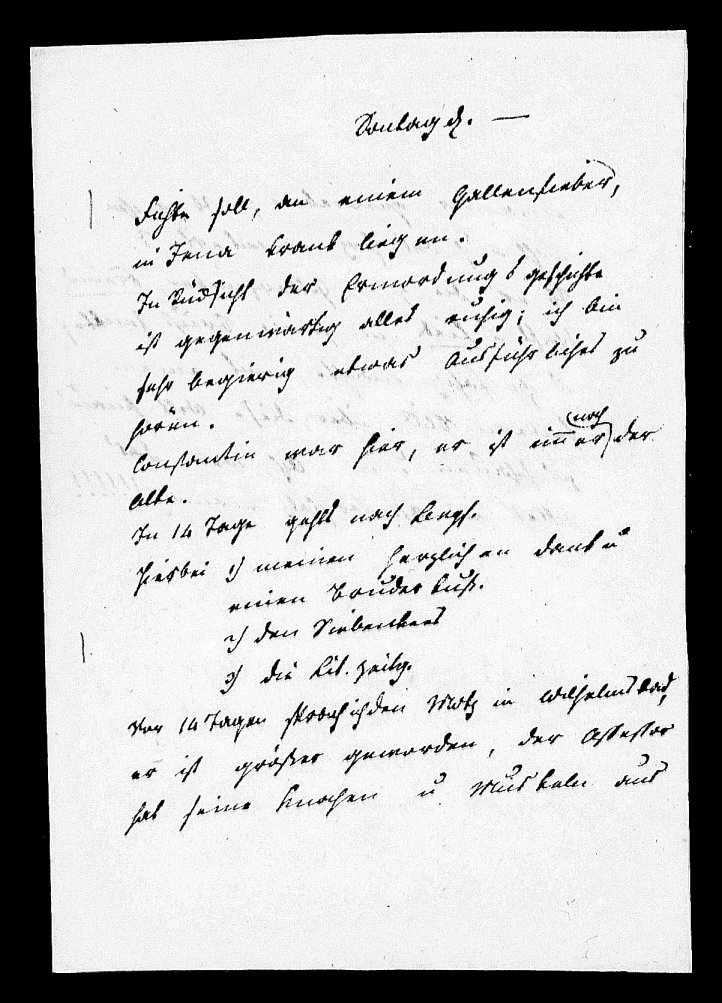 Sontag d. —
Fichte soll, an einem Gallenfieber,
in Jena krank liegen.
In Rücksicht der Ermordungsgeschichte
ist gegenwärtig alles ruhig; ich bin
sehr begierig etwas Ausführliches zu
hören.
noch
Constantin war hier, er ist im̅er der
Alte.
In 14 Tage gehts nach
Hierbei 1) meinen herzlichen Dank u
einen Bruderkuß.
2) den Siebenkees
3) die Lit. Zeitg.
Vor 14 Tagen sprach ich den Motz in Wilhelmsbad,
er ist größer geworden, der Assessor
hat seine Knochen u. Muskeln aus